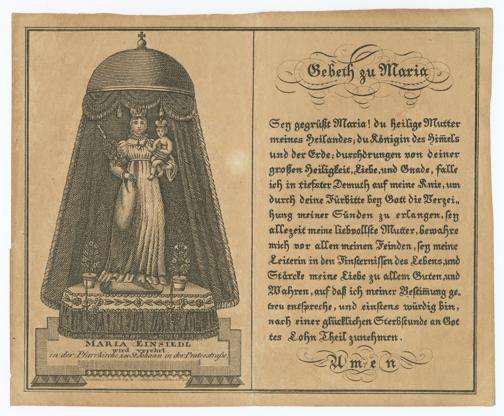 MARIA EINSIEDL
wird verehrt
in der Pfarrkirche zu St Johann in der Praterstraße.
Gebeth zu Maria
Sey gegrüßt Maria! du heilige Mutter
meines Heilandes; du Königin des Him̅els
und der Erde; durchdrungen von deiner
großen Heiligkeit, Liebe, und Gnade, falle
ich in tiefster Demuth auf meine Knie, um
durch deine Fürbitte bey Gott die Verzei⸗
hung meiner Sünden zu erlangen, sey
allezeit meine liebvollste Mutter, bewahre
mich vor allen meinen Feinden, sey meine
Leiterin in den Finsternissen des Lebens, und
Stärcke meine Liebe zu allem Guten, und
Wahren, auf daß ich meiner Bestim̅ung ge⸗
treu entspreche, und einstens würdig bin,
nach einer glücklichen Sterbstunde an Got
tes Lohn Theil zunehmen.
Amen